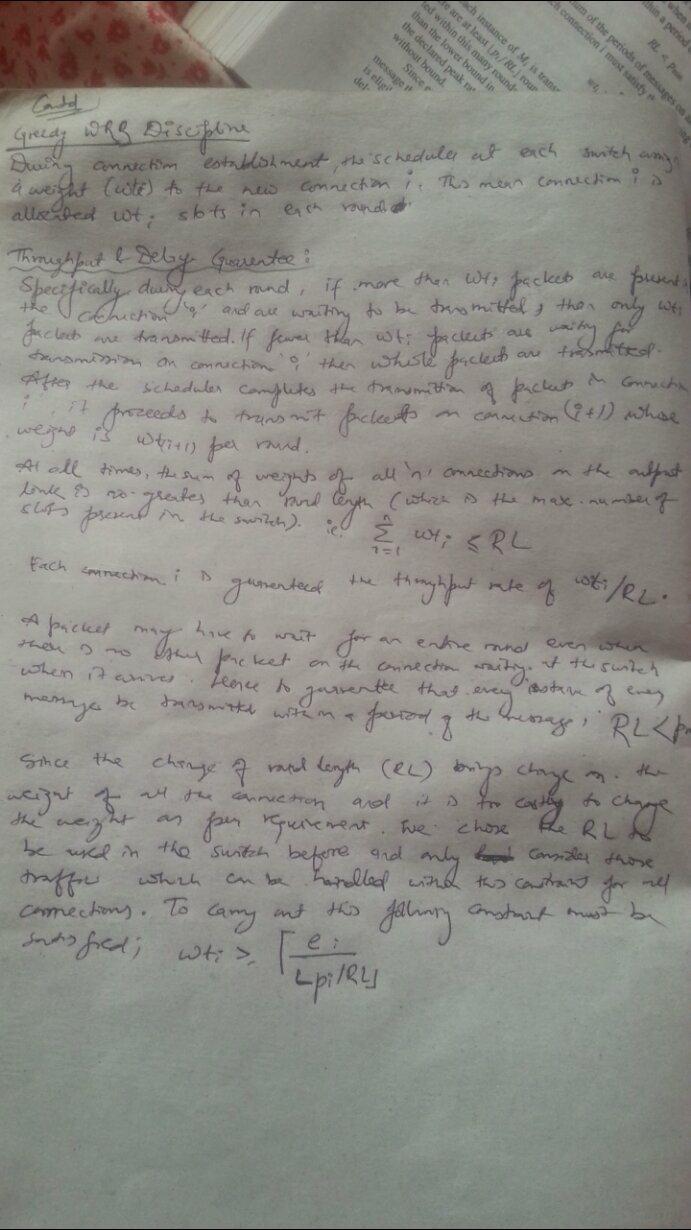 each instance of Mi is trans
ere are at least ⌊pi / RL⌋ roun
ted within this many round
than the lower bound in
the declared peak ra
without bound.
Since
message
is eligi
del-
um of the periods of messages on
ch connection i must satisfy
RL <
within a period
when
Contd
Greedy WRR Discipline
During connection establishment, the scheduler at each switch assign
a weight (wti) to the new connection i. This mean connection i is
allocated wti slots in each round
Throughput & Delay Guarantee :
Specifically during each round, if more than wti packets are present
the connection 'i' and are waiting to be transmitted, than only wti
packets are transmitted. If fewer than wti packets are waiting for
transmission on connection 'i' then whole packets are trasmitted.
After the scheduler completes the transmition of packets in connectio
i, it proceeds to transmit packets on connection (i+1) whose
weight is wt(i+1) per round.
At all times, the sum of weights of all 'n' connections on the output
link is no greater than round length (which is the max. number of
slots present in the switch). i.e. n∑i=1 wti ≤ RL
Each connection i is guaranteed the throughput rate of wti/RL.
A packet may have to wait for an entire round even when
there is no other packet on the connection waiting at the switch
when it arrives. Hence to guarrentee that every instance of every
message be transmitted within a period of the message, RL < p
Since the change of round length (RL) brings change in the
weight of all the connection and it is too costly to change
the weight as per requirement. We chose the RL to
be used in the switch before and only consider those
traffic which can be handled within this constraint for all
connections. To carry out this following constraint must be
satisfied; wti ≥ ⌈ei / ⌊pi/RL⌋